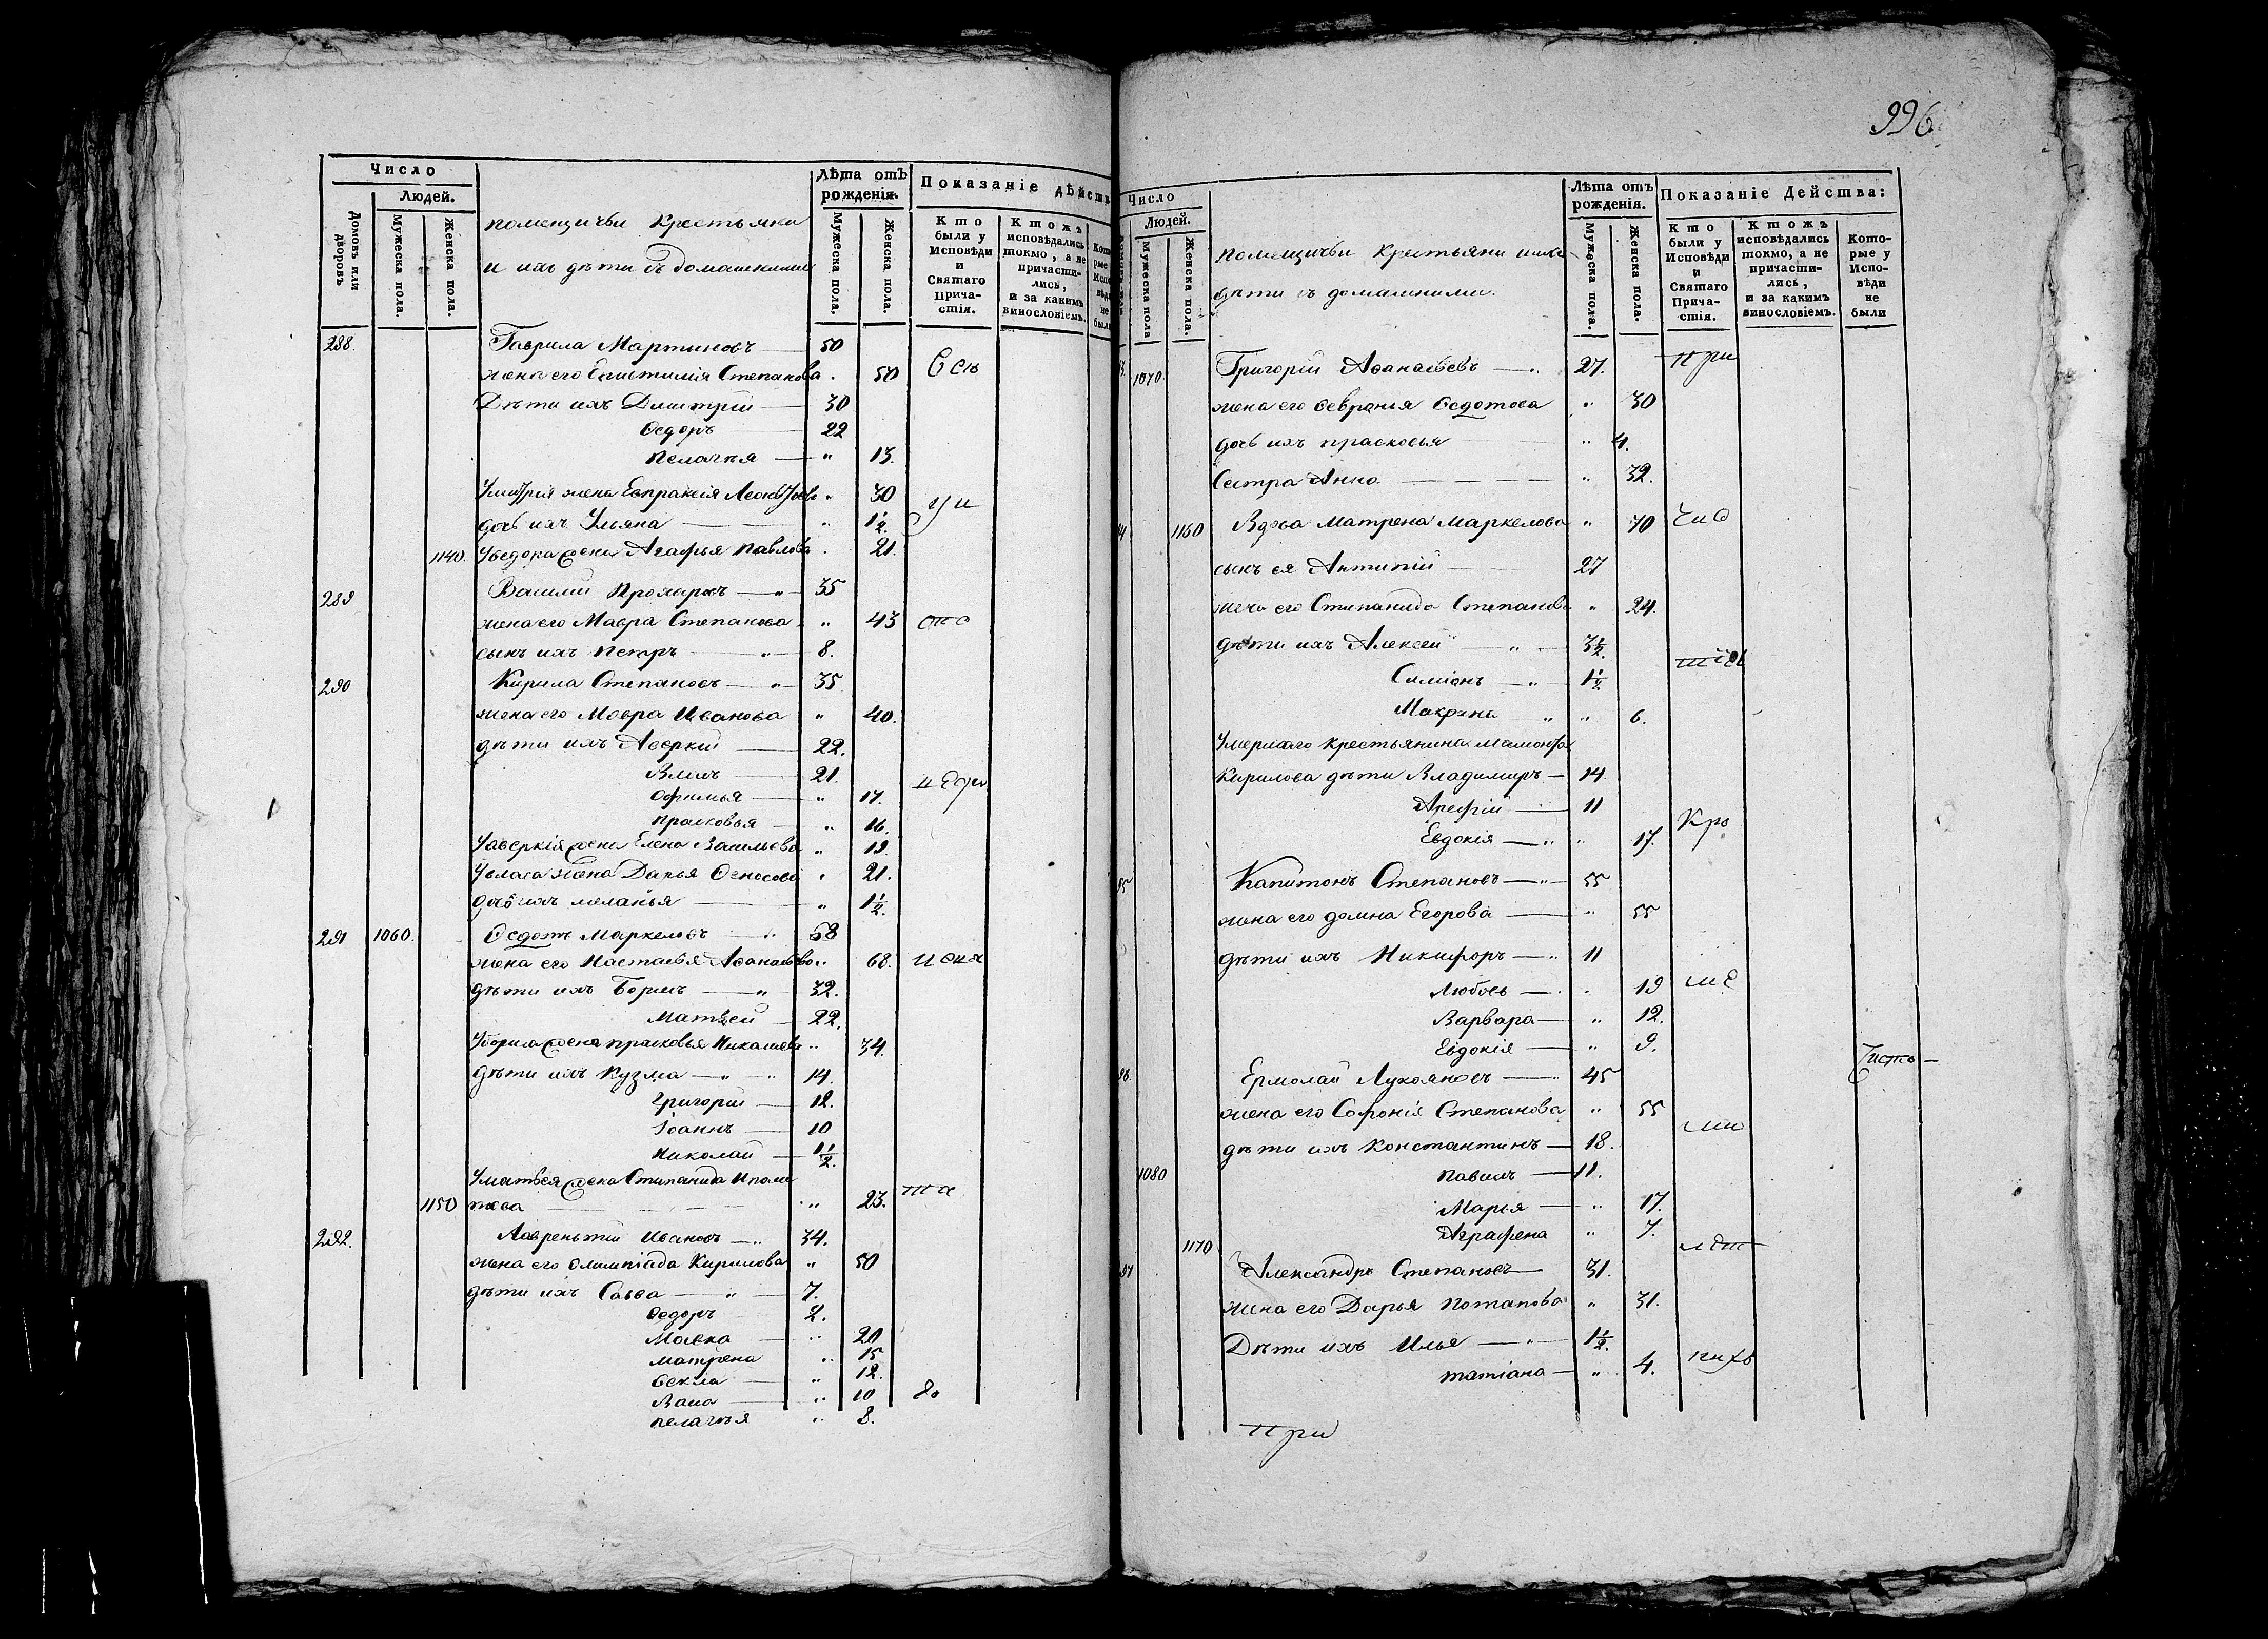 Число
Людей.
Домовъ или дворовъ
Мужеска пола.
Женска пола.
помещичьи Крестьяни
и ихъ дѣти съ домашними
Лѣта отъ рожденія.
Мужеска пола.
Женска пола.
Показаніе дѣйств
Кто были у Исповѣди и Святаго Прича-стія.
Ктожъ исповѣдались токмо, а не причасти-лись, и за какимъ винословіемъ.
288. Гаврила Мартыновъ — 50
жена его Епистимія Степанова " 50
Дѣти ихъ Дмитрій — 30
Ѳедоръ — 22
Пелагѣя — " 13.
У митрія жена Евпраксія Леонтьева " 30
дочь ихъ Ульяна — " 1 1/2.
1140. У ѳедора жена Агафья Павлова " 21.
289 Василий Прохаровъ — " — 35
жена его Мавра Степанова " 43
сынъ ихъ Петръ — " — 8.
290 Кирила Степановъ — " — 35
жена его Мавра Иванова " 40.
дѣти ихъ Аверкий — 22.
Власъ — 21.
Офимья — " 17.
Прасковья — " 16.
У аверкія жена Елена Васильева " 19.
У власа жена Дарья " 21.
дочь ихъ меланья — " 1 1/2.
291 1060. Ѳедотъ Маркеловъ — " 68
жена его Настасья Аѳанасьева " 68.
дѣти ихъ Борисъ — " — 32.
Матвей — 22.
У бориса жена прасковья Николаева " 34.
дѣти ихъ Кузма — " — " 14.
Григорій — 12.
Іоаннъ — 10
Николай — 1 1/2.
У матвея жена Степанида Ипали
1150 това — " 23.
292. Лаврентий Ивановъ — " 34.
жена его Олимпіада Кирилова " 50
дѣти ихъ Савва — " — 7.
Ѳедоръ 2.
Мавка — " 20
Матрена " 15
Ѳекла — " 12.
Васа — " 10
пелагѣя " 8.
996
Число
Людей.
Мужеска пола
Женска пола.
помещичьи Крестьяни иихъ
дѣти съ домашними.
Лѣта отъ рожденія.
Мужеска пола.
Женска пола.
Показаніе Действа:
Кто были у Исповѣди и Святаго Прича-стія.
Ктожъ исповѣдались токмо, а не причасти-лись, и за какимъ винословіемъ.
Кото-рые у Испо-вѣди не были
1070. Григорій Аѳанасьевъ — " 27. при
жена его Ѳевронья Ѳедотова " 30
дочь ихъ прасковья " 4.
Сестра Анна — — — " 32.
1160 Вдова Матрена Маркелова " 70
сынъ ея Антипій — 27
жена его Степанида Степанова " 24.
дѣти ихъ Алексей — " — 3 1/2.
Симіонъ — " — 1 1/2.
Макрина " " 6.
Умершаго крестьянина мамонта
Кирилова дѣти Владимиръ — 14.
Арефій — 11
Евдокія — " " 17.
Капитонъ Степановъ — " — 55
жена его домна Егорова — " 55
дѣти ихъ Никифоръ — " 11
Любовь — " " 19
Варвара — " 12.
Евдокія — " 9.
Ермолай Лукояновъ — " 45
жена его Софонія Степанова " 55
дѣти ихъ Константинъ — 18.
1080 павилъ — 11.
Марья — " 17.
1170 Аграфена " 7.
Александръ Степановъ — 31.
жена его Дарья Потапова " 31.
Дѣти ихъ Илья — " — 1 1/2.
татіана — " 4.
при